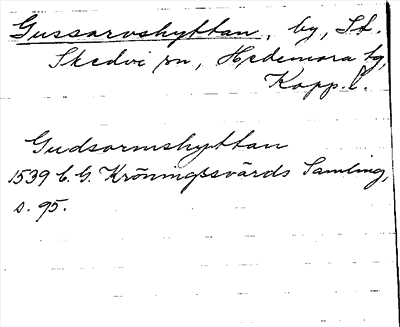 Gussarvshyttan, by, St.
Skedvi sn, Hedemora tg,
Kopp. l.
Gudsormshyttan
1539 C. G. Kröningsvärds Samling,
s. 95.